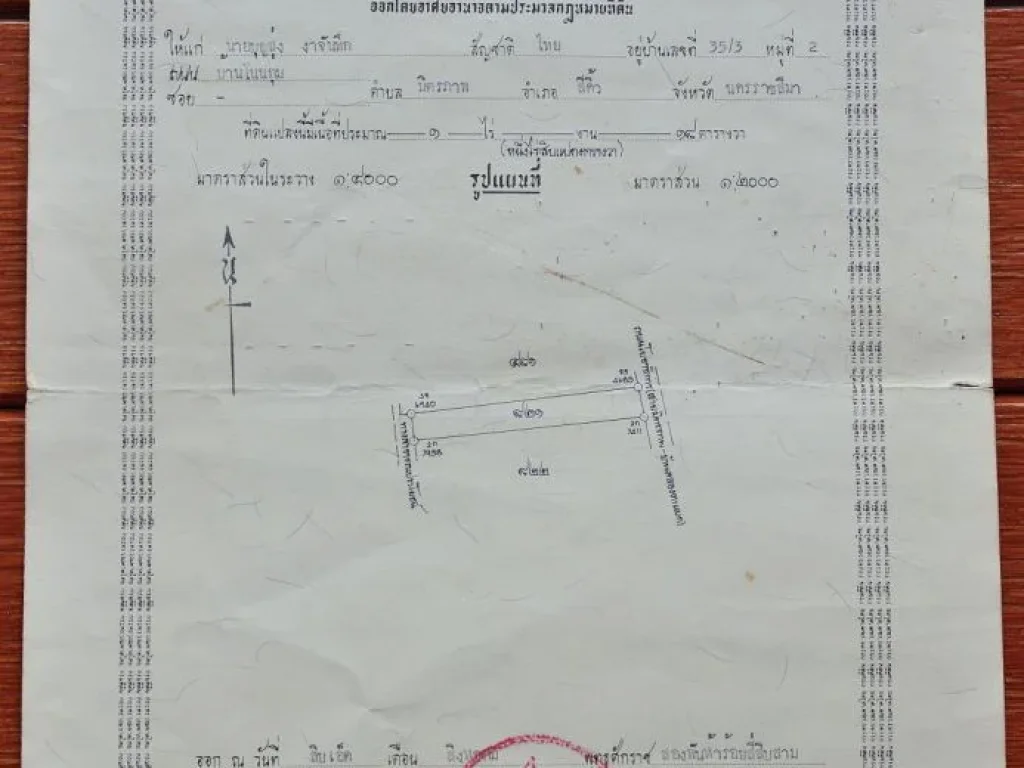 ออกโดยอาศัยอำนาจตามประมวลกฎหมายที่ดิน
ให้แก่ นายบุญส่ง สัญชาติ ไทย อยู่บ้านเลขที่ 35/3 หมู่ที่ 2
ถนน บ้านโนนกุ่ม
ซอย - ตำบล มิตรภาพ อำเภอ สี่คิ้ว จังหวัด นครราชสีมา
ที่ดินแปลงนี้มีเนื้อที่ประมาณ ๑ ไร่ งาน ๑๘ ตารางวา
(หนึ่งไร่สิบแปดตารางวา)
มาตราส่วนในระวาง ๑:๔๐๐๐ รูปแผนที่ มาตราส่วน ๑:๒๐๐๐
น
๘๒๑
๘๒๒
ทางสาธารณประโยชน์
ออก ณ วันที่ สิบเอ็ด เดือน สิงหาคม พุทธศักราช สองพันห้าร้อยสี่สิบสาม